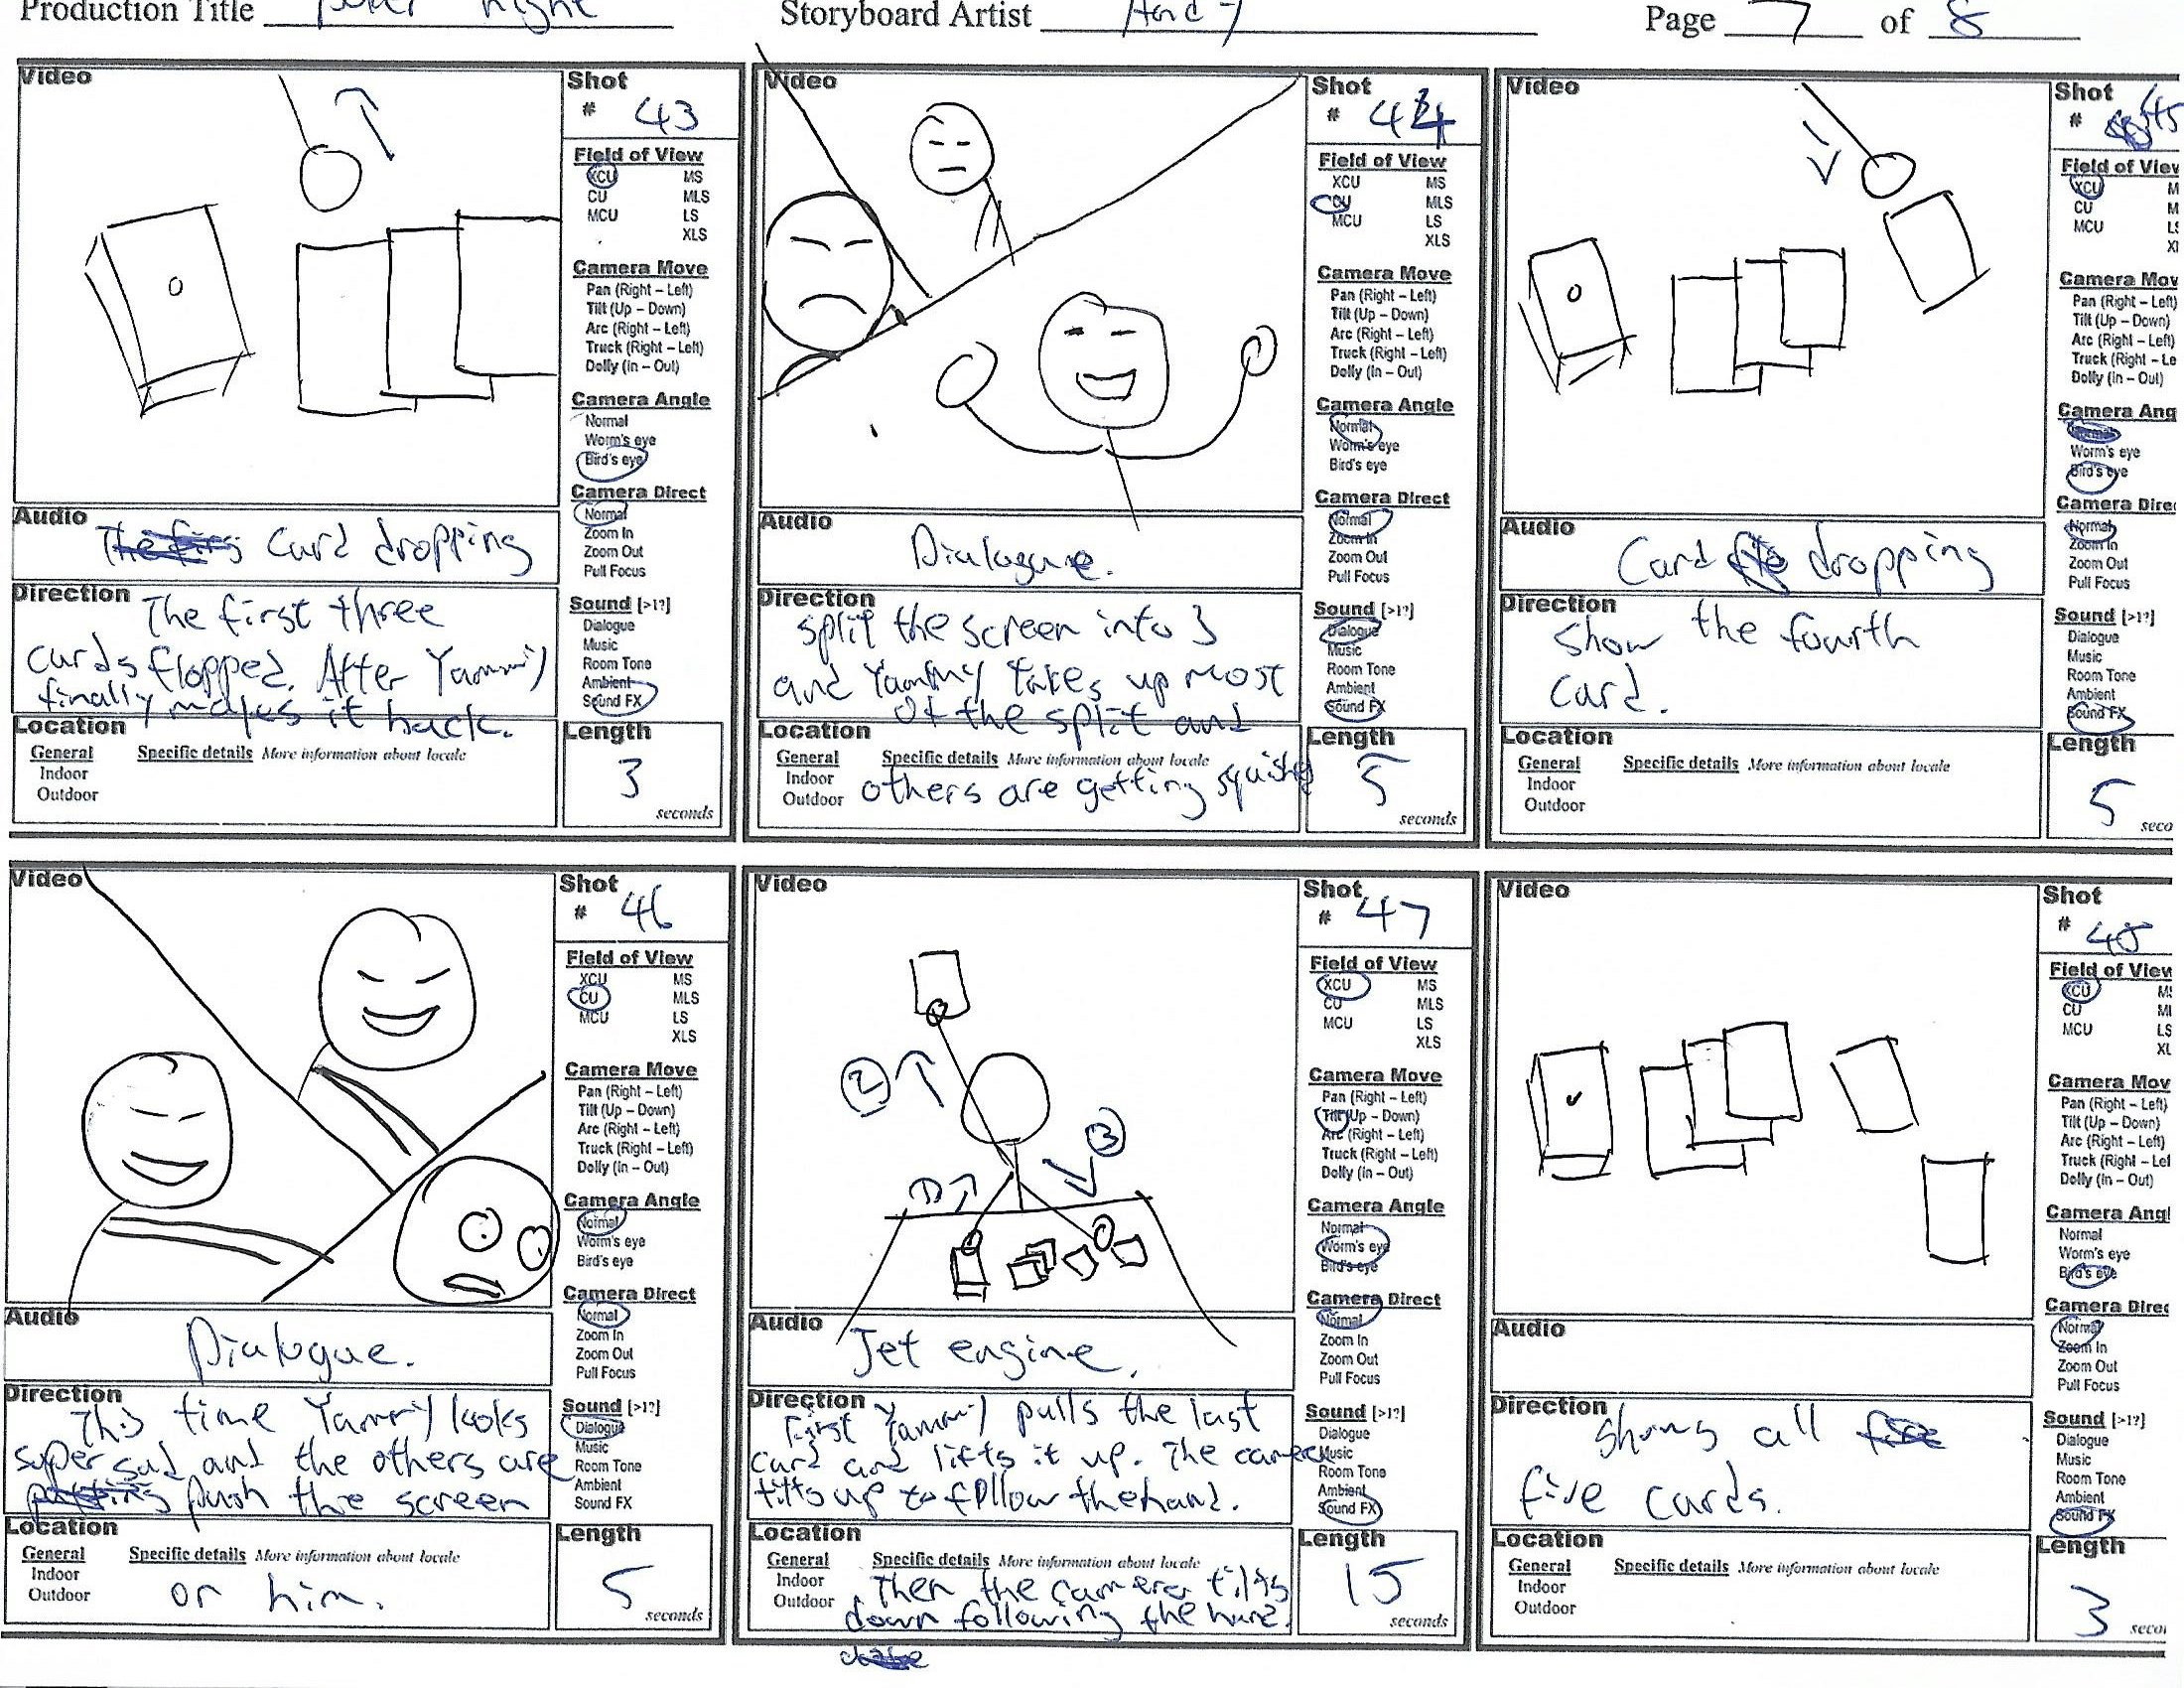 Production Title Poker Night Storyboard Artist Andy Page 7 of 8
Video
Shot
# 43
Field of View
XCU MS
CU MLS
MCU LS
XLS
Camera Move
Pan (Right – Left)
Tilt (Up – Down)
Arc (Right – Left)
Truck (Right – Left)
Dolly (In – Out)
Camera Angle
Normal
Worm's eye
Bird's eye
Camera Direct
Normal
Zoom In
Zoom Out
Pull Focus
Sound [>1?]
Dialogue
Music
Room Tone
Ambient
Sound FX
Audio
Card dropping
Direction
The first three
cards flopped. After Yammy
finally makes it back.
Location
General Specific details More information about locale
Indoor
Outdoor
Length
3
seconds
Video
Shot
# 44
Field of View
XCU MS
CU MLS
MCU LS
XLS
Camera Move
Pan (Right – Left)
Tilt (Up – Down)
Arc (Right – Left)
Truck (Right – Left)
Dolly (In – Out)
Camera Angle
Normal
Worm's eye
Bird's eye
Camera Direct
Normal
Zoom In
Zoom Out
Pull Focus
Sound [>1?]
Dialogue
Music
Room Tone
Ambient
Sound FX
Audio
Dialogue.
Direction
split the screen into 3
and Yammy takes up most
of the split and
Location
General Specific details More information about locale
Indoor
Outdoor
others are getting squished
Length
5
seconds
Video
Shot
# 45
Field of View
XCU M
CU M
MCU LS
Xl
Camera Mov
Pan (Right – Left)
Tilt (Up – Down)
Arc (Right – Left)
Truck (Right – Le
Dolly (In – Out)
Camera Ang
Normal
Worm's eye
Bird's eye
Camera Direc
Normal
Zoom In
Zoom Out
Pull Focus
Sound [>1?]
Dialogue
Music
Room Tone
Ambient
Sound FX
Audio
Card dropping
Direction
Show the fourth
card.
Location
General Specific details More information about locale
Indoor
Outdoor
Length
5
seco
Video
Shot
# 46
Field of View
XCU MS
CU MLS
MCU LS
XLS
Camera Move
Pan (Right – Left)
Tilt (Up – Down)
Arc (Right – Left)
Truck (Right – Left)
Dolly (In – Out)
Camera Angle
Normal
Worm's eye
Bird's eye
Camera Direct
Normal
Zoom In
Zoom Out
Pull Focus
Sound [>1?]
Dialogue
Music
Room Tone
Ambient
Sound FX
Audio
Dialogue.
Direction
This time Yammy looks
super sad and the others are
push the screen
Location
General Specific details More information about locale
Indoor
Outdoor
or him.
Length
5
seconds
Video
2
3
1
Shot
# 47
Field of View
XCU MS
CU MLS
MCU LS
XLS
Camera Move
Pan (Right – Left)
Tilt (Up – Down)
Arc (Right – Left)
Truck (Right – Left)
Dolly (In – Out)
Camera Angle
Normal
Worm's eye
Bird's eye
Camera Direct
Normal
Zoom In
Zoom Out
Pull Focus
Sound [>1?]
Dialogue
Music
Room Tone
Ambient
Sound FX
Audio
Jet engine.
Direction
First Yammy pulls the last
card and lifts it up. The camera
tilts up to follow the hand.
Location
General Specific details More information about locale
Indoor
Outdoor
Then the camera tilts
down following the hand.
Length
15
seconds
Video
Shot
# 48
Field of View
XCU MS
CU Ml
MCU LS
XL
Camera Mov
Pan (Right – Left)
Tilt (Up – Down)
Arc (Right – Left)
Truck (Right – Lef
Dolly (In – Out)
Camera Angl
Normal
Worm's eye
Bird's eye
Camera Direc
Normal
Zoom In
Zoom Out
Pull Focus
Sound [>1?]
Dialogue
Music
Room Tone
Ambient
Sound FX
Audio
Direction
Shows all
five cards.
Location
General Specific details More information about locale
Indoor
Outdoor
Length
3
seco